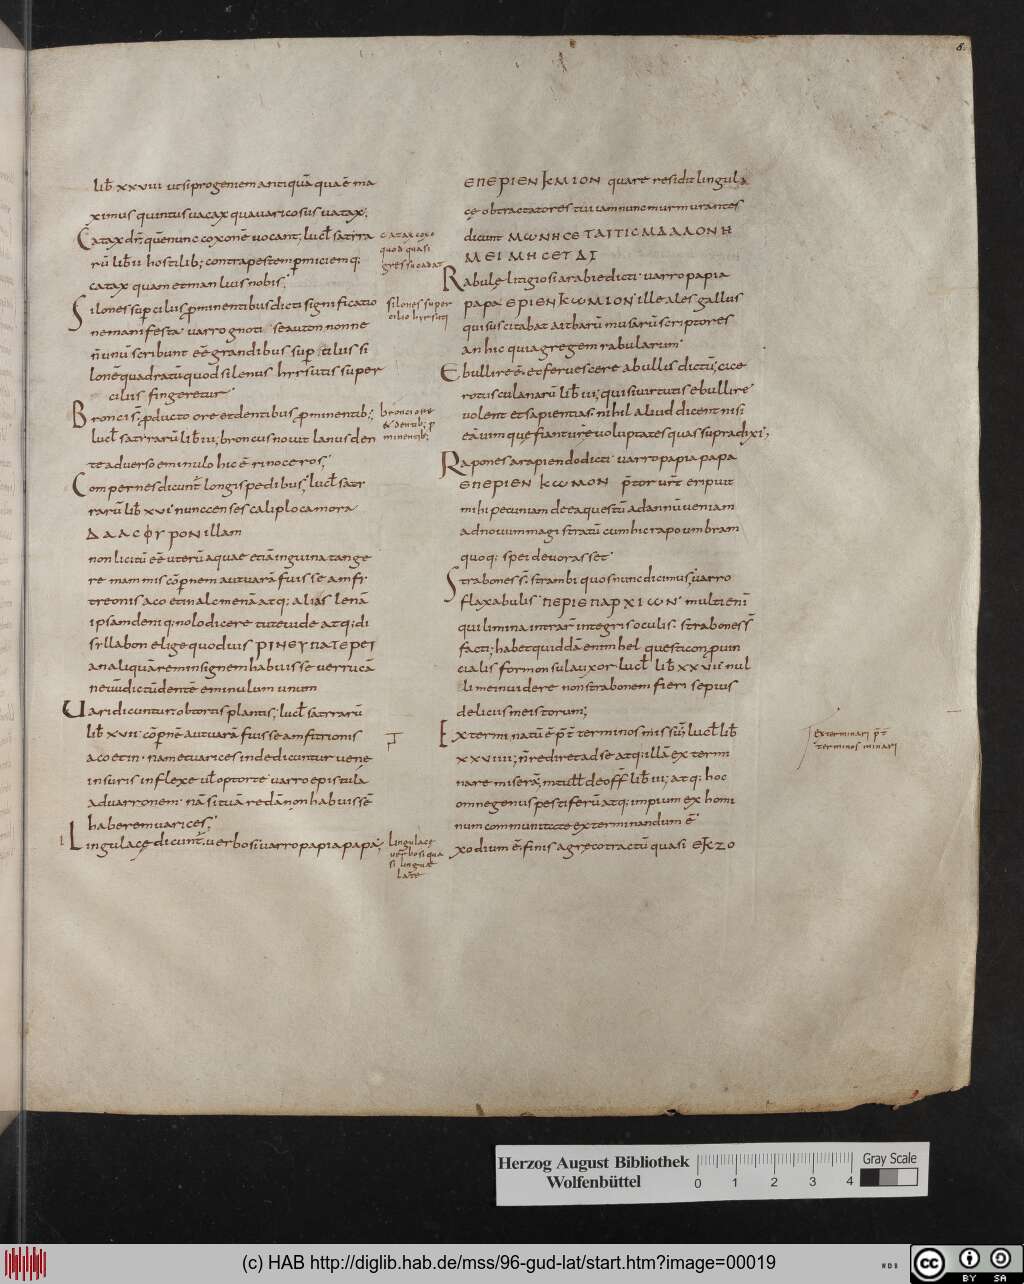 8.
lib̄ xxviii ut si progeniem antiquā qua ē ma
ximus quintus uacax qua uaricosus uatax;
Catax dr̄ quē nunc coxonē uocant; lucł satrra
rū lib̄ ii hostilib; contra pestem permiciemq;
catax quam et manlius nobis;
Silones superciliis prominentibus dicti significatio
ne manifesta varro gnoti seauton non ne
n̄ unū scribunt eē grandibus superciliis si
lonē quadratū quod silenus hyrsutis super
ciliis fingeretur
Broncis̄ producto ore et dentibus prominentib;
lucł satrrarū lib̄ iii; broncus nouit lanus den
te aduerso eminulo hic ē rinoceros;
Compernes dicunt̄ longis pedibus; lucł satr
rarū lib̄ xvi nunc censes caliplocamon
non licitū eē uterū aquae etiā inguina tange
re mammis cōpnem aut uarā fuisse amfy
tryonis acoetin alcmenā atq; alias lenā
ipsam deniq; nolo dicere tute uide atq; di
syllabon elige quoduis ΡΙΝΕΥΠΑΤΕΡΕΙ
an aliquā rem insignem habuisse uerrucā
neuū dictū dentē eminulum unum
Uari dicuntur obtortis plantis; lucł satrrarū
lib̄ xvii cōpnē aut uarā fuisse amfitrionis
acoetin nam et uarices inde dicuntur uene
in suris inflexe uł optorte varro epistula
ad uarronem nā si tuā redā non habuissē
haberem uarices;
Lingulace dicunt̄ uerbosi varro papia papa;
catax coxo
quod quasi
gressu cadat
silones super
cilio hyrsuti
bronci ore
& dentib; p
minentib;
lingulace
uerbosi qua
si lingue
late
ΕΠΕΡΙΕΝΚΜΙΟΝ quare residit lingula
ce obtractatores tui iam nunc murmurantes
dicunt ΜΩΝΗCΕΤΑΙΤΙCΜΔΛΛΟΝΗ
ΜΕΙΜΗCΕΤΔΙ
Rabule litigiosi a rabie dicti varro papia
papa ΕΡΙΕΝΚΩΜΙΟΝ ille ales gallus
qui suscitabat aitharū musarū scriptores
an hic qui agregem rabularum
Ebullire ē. et feruescere a bullis dictū; cice
ro tusculanarū lib̄ iii; qui si uirtutis ebullire
volent et sapientias. nihil aliud dicent nisi
eā uim que fiant ure uoluptates quas supra dixi;
Rapones a rapiendo dicti varro papia papa
ΕΠΕΡΙΕΝ ΚΩΜΟΝ p̄tor urt̄ eripuit
mihi pecuniam de ea questū ad annū ueniam
ad nouum magistratū cum hic rapo umbram
quoq; spei deuorasset
Strabones s̄. strambi quos nunc dicimus; varro
flaxabulis ΠΕΡΙΕΠΑΡΧΙΩΝ multi enī
qui limina intrar̄ integris oculis. strabones s̄
facti; habet quiddā enim hel questicon prouin
cialis formonsula uxor lucł lib̄ xxvii nul
li me inuidere non strabonem fieri sepius
deliciis me istorum;
Exterminatū ē p̄t̄ terminos missū; lucł lib̄
xxviiii; n̄ rediret ad se atq; illā extermi
nare miserā; m tułł de off̄ lib̄ iii; atq; hoc
omne genus pestiferū atq; impium ex homi
num communitate exterminandum ē
xodium ē. finis a greco tractū quasi ΕΚΖΟ
exterminari p̄t̄
terminos minari
Herzog August Bibliothek
Wolfenbüttel
0 1 2 3 4
Gray Scale
(c) HAB http://diglib.hab.de/mss/96-gud-lat/start.htm?image=00019
WDB
cc BY SA